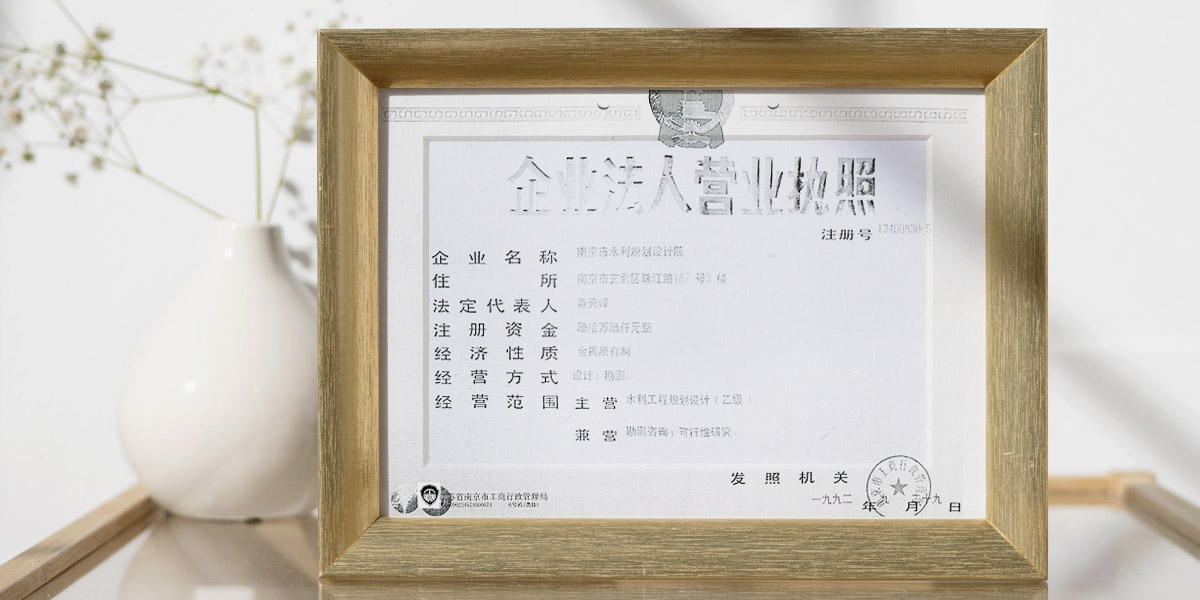 企业法人营业执照
注册号 13490830-5
企业名称 南京市水利规划设计院
住所 南京市玄武区珠江路187号3楼
法定代表人 黄天峰
注册资金 陆拾万陆仟元整
经济性质 全民所有制
经营方式 设计；勘测。
经营范围 主营 水利工程规划设计（乙级）。
兼营 勘测咨询；可行性研究。
发照机关
一九九二年九月十九日
省南京市工商行政管理局